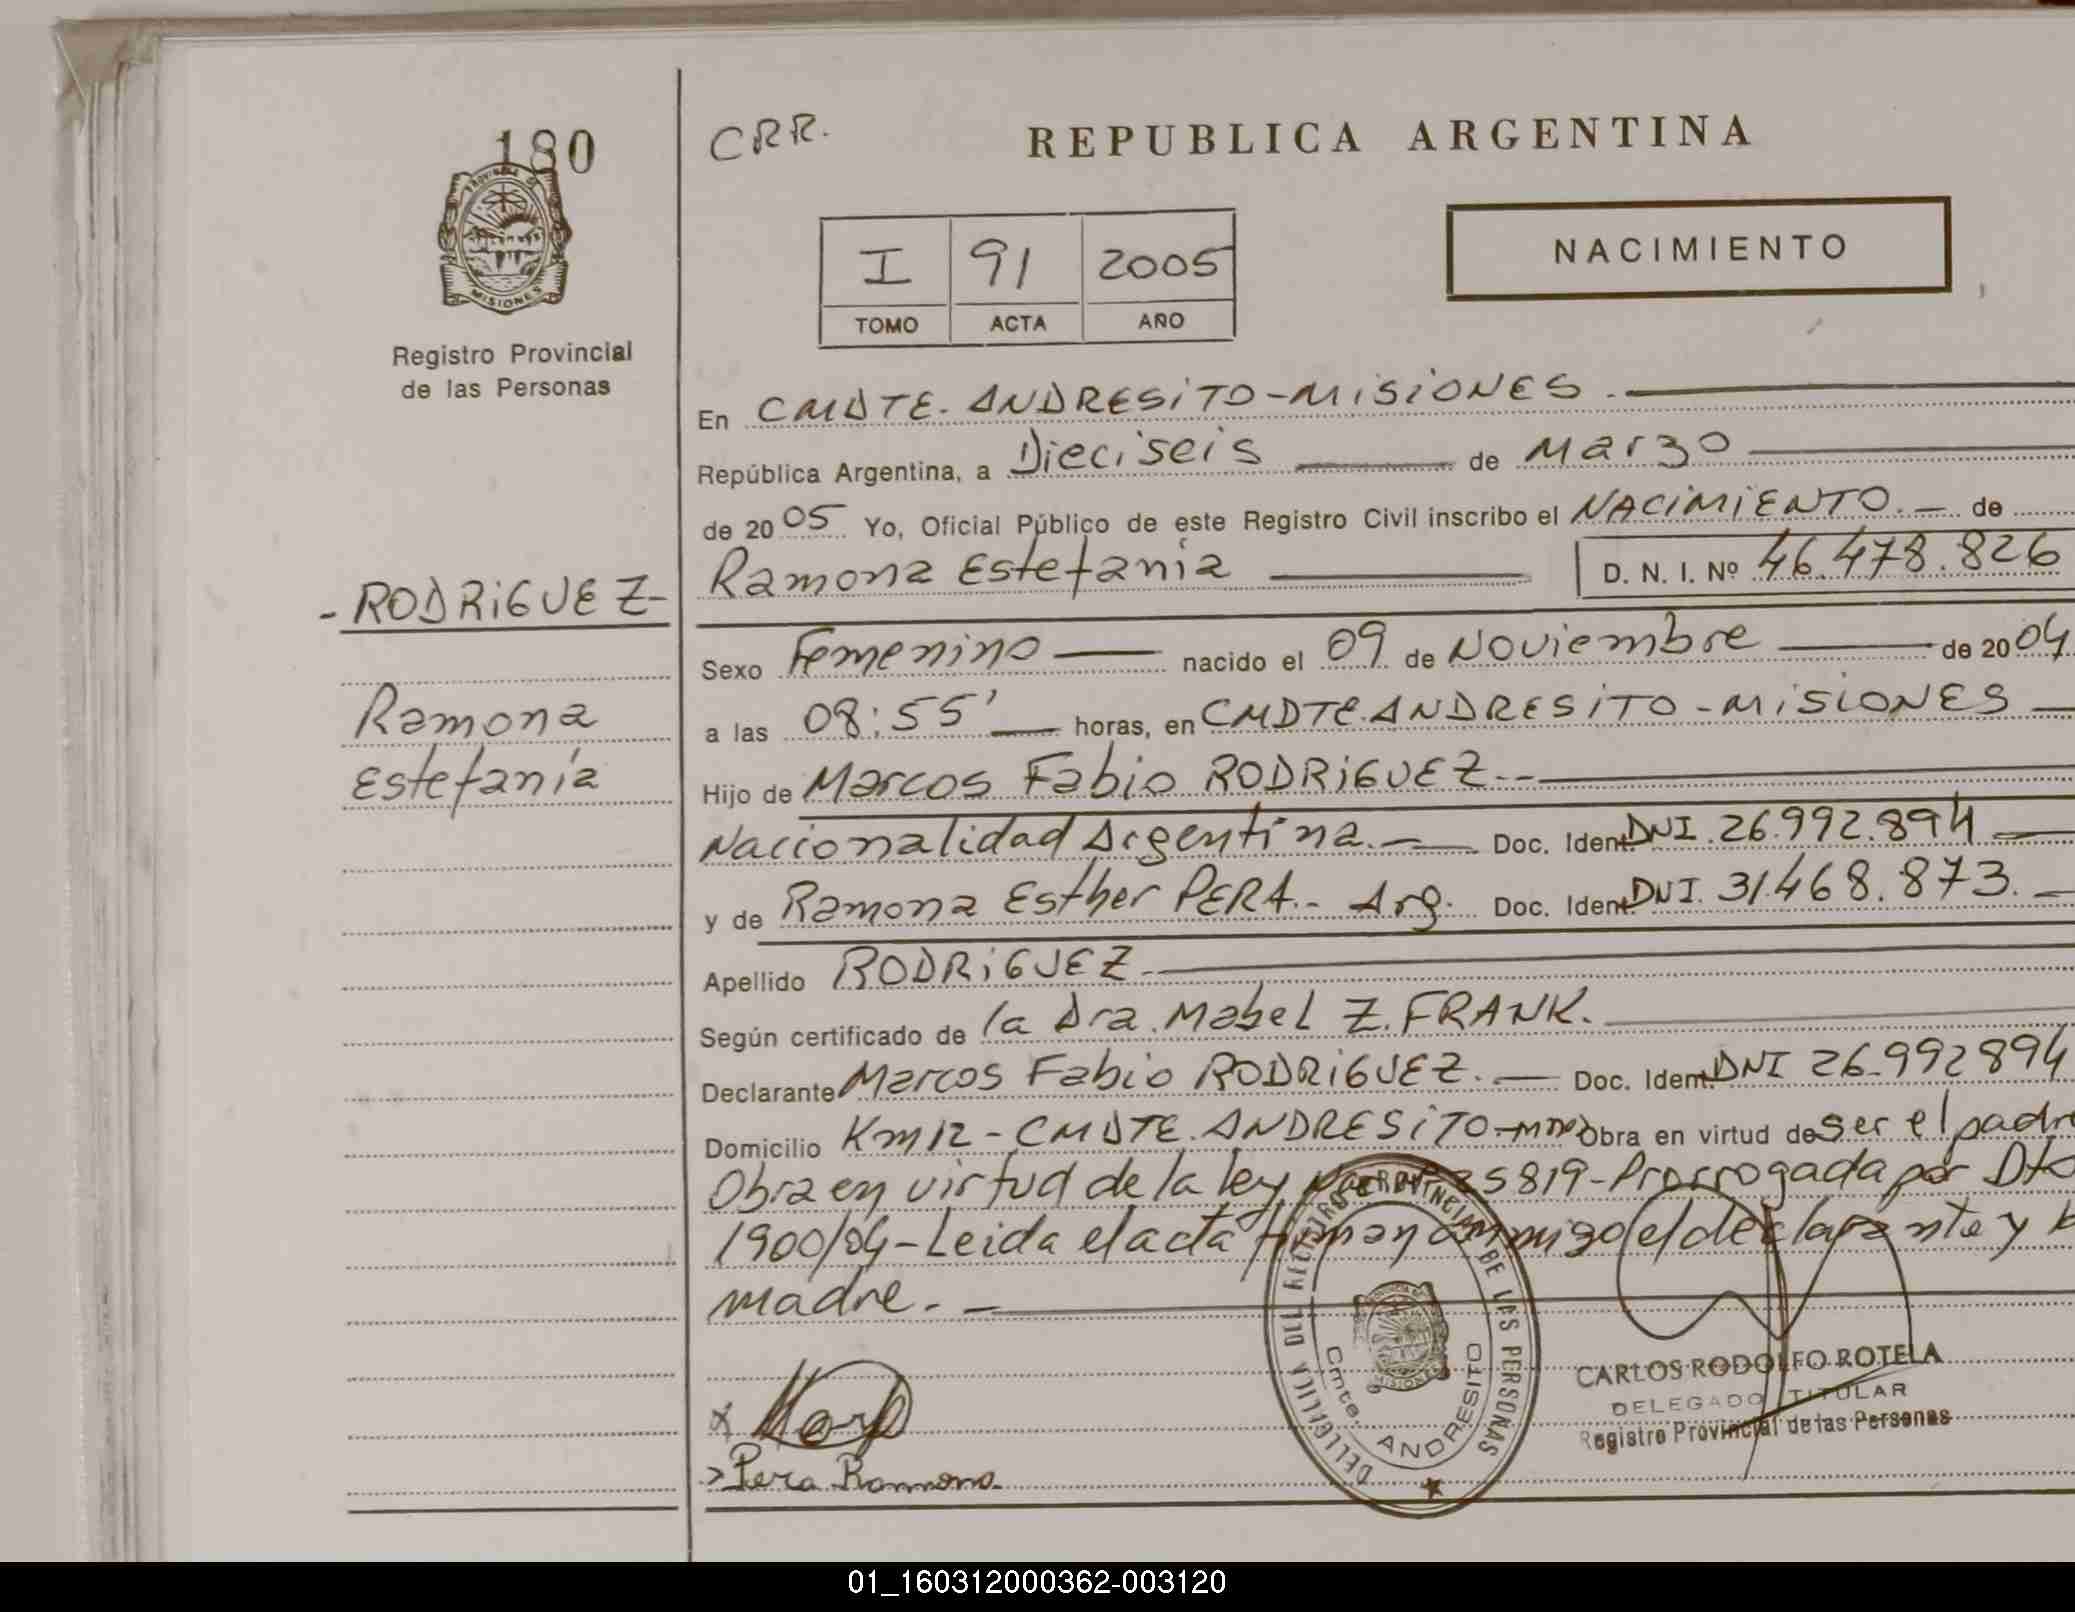 180
CRR.
REPUBLICA ARGENTINA
PROVINCIA DE
MISIONES
Registro Provincial
de las Personas
I 91 2005
TOMO ACTA AÑO
NACIMIENTO
En CMDTE. ANDRESiTO-MiSiONES.
República Argentina, a Dieciseis de Marzo
de 2005 Yo, Oficial Público de este Registro Civil inscribo el NACiMiENTO.- de
Ramona Estefanía D. N. I. Nº 46.478.826
-RODRiGUEZ-
Ramona
Estefanía
Sexo Femenino nacido el 09 de Noviembre de 2004
a las 08:55' horas, en CMDTE.ANDRESiTO-MiSiONES
Hijo de Marcos Fabio RODRiGUEZ.--
Nacionalidad Argentina.- Doc. Ident. DNI.26.992.894
y de Ramona Esther PERA.- Arg. Doc. Ident. DNI.31.468.873.
Apellido RODRiGUEZ.
Según certificado de la Dra.Mabel Z.FRANK.
Declarante Marcos Fabio RODRiGUEZ. Doc. Ident. DNI 26.992894
Domicilio Km12-CMDTE.ANDRESiTO- Obra en virtud de ser el padre
Obra en virtud de la ley 25819-Prorrogada por Dto
1900/04-Leida el acta firman conmigo el declarante y la
madre.-
x
>Pera Ramona.
DELEGACION DEL REGISTRO PROVINCIAL DE LAS PERSONAS
Cmte. ANDRESITO
MISIONES
CARLOS RODOLFO ROTELA
DELEGADO TITULAR
Registro Provincial de las Personas
01_160312000362-003120